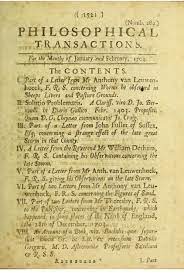 ( 1521 )
(Numb. 289)
PHILOSOPHICAL
TRANSACTIONS.
For the Months of January and February, 1704.
The CONTENTS.
I. Part of a Letter from Mr Anthony van Leuwen-
hoeck, F. R. S. concerning Worms be observed in
Sheeps Livers and Pasture Grounds.
II. Solutio Problematis. A Clariss. viro D. Jo. Ber-
noulli in Diario Gallico Febr. 1403. Propositi.
Quam D. G. Cheynæo communicavit Jo. Craig.
III. Part of a Letter from John Fuller of Sussex,
Esq; concerning a strange effect of the late great
Storm in that County.
IV. A Letter from the Reverend Mr William Derham,
F. R. S. Containing his Observations concerning the
late Storm.
V. Part of a Letter from Mr Anth. van Leuwenhoeck,
F. R. S. giving his Observations on the late Storm.
VI. Part of a Letter from Mr Anthony van Leuwenhoeck,
F. R. S. concerning the Figures of Sand.
VII. Part of two Letters from Mr Thoresby, F. R. S.
to the Publisher, concerning an Earthquake, which
happened in some places of the North of England,
the 28th of December, 1703.
M. D.
& R. S. S.
I. Part